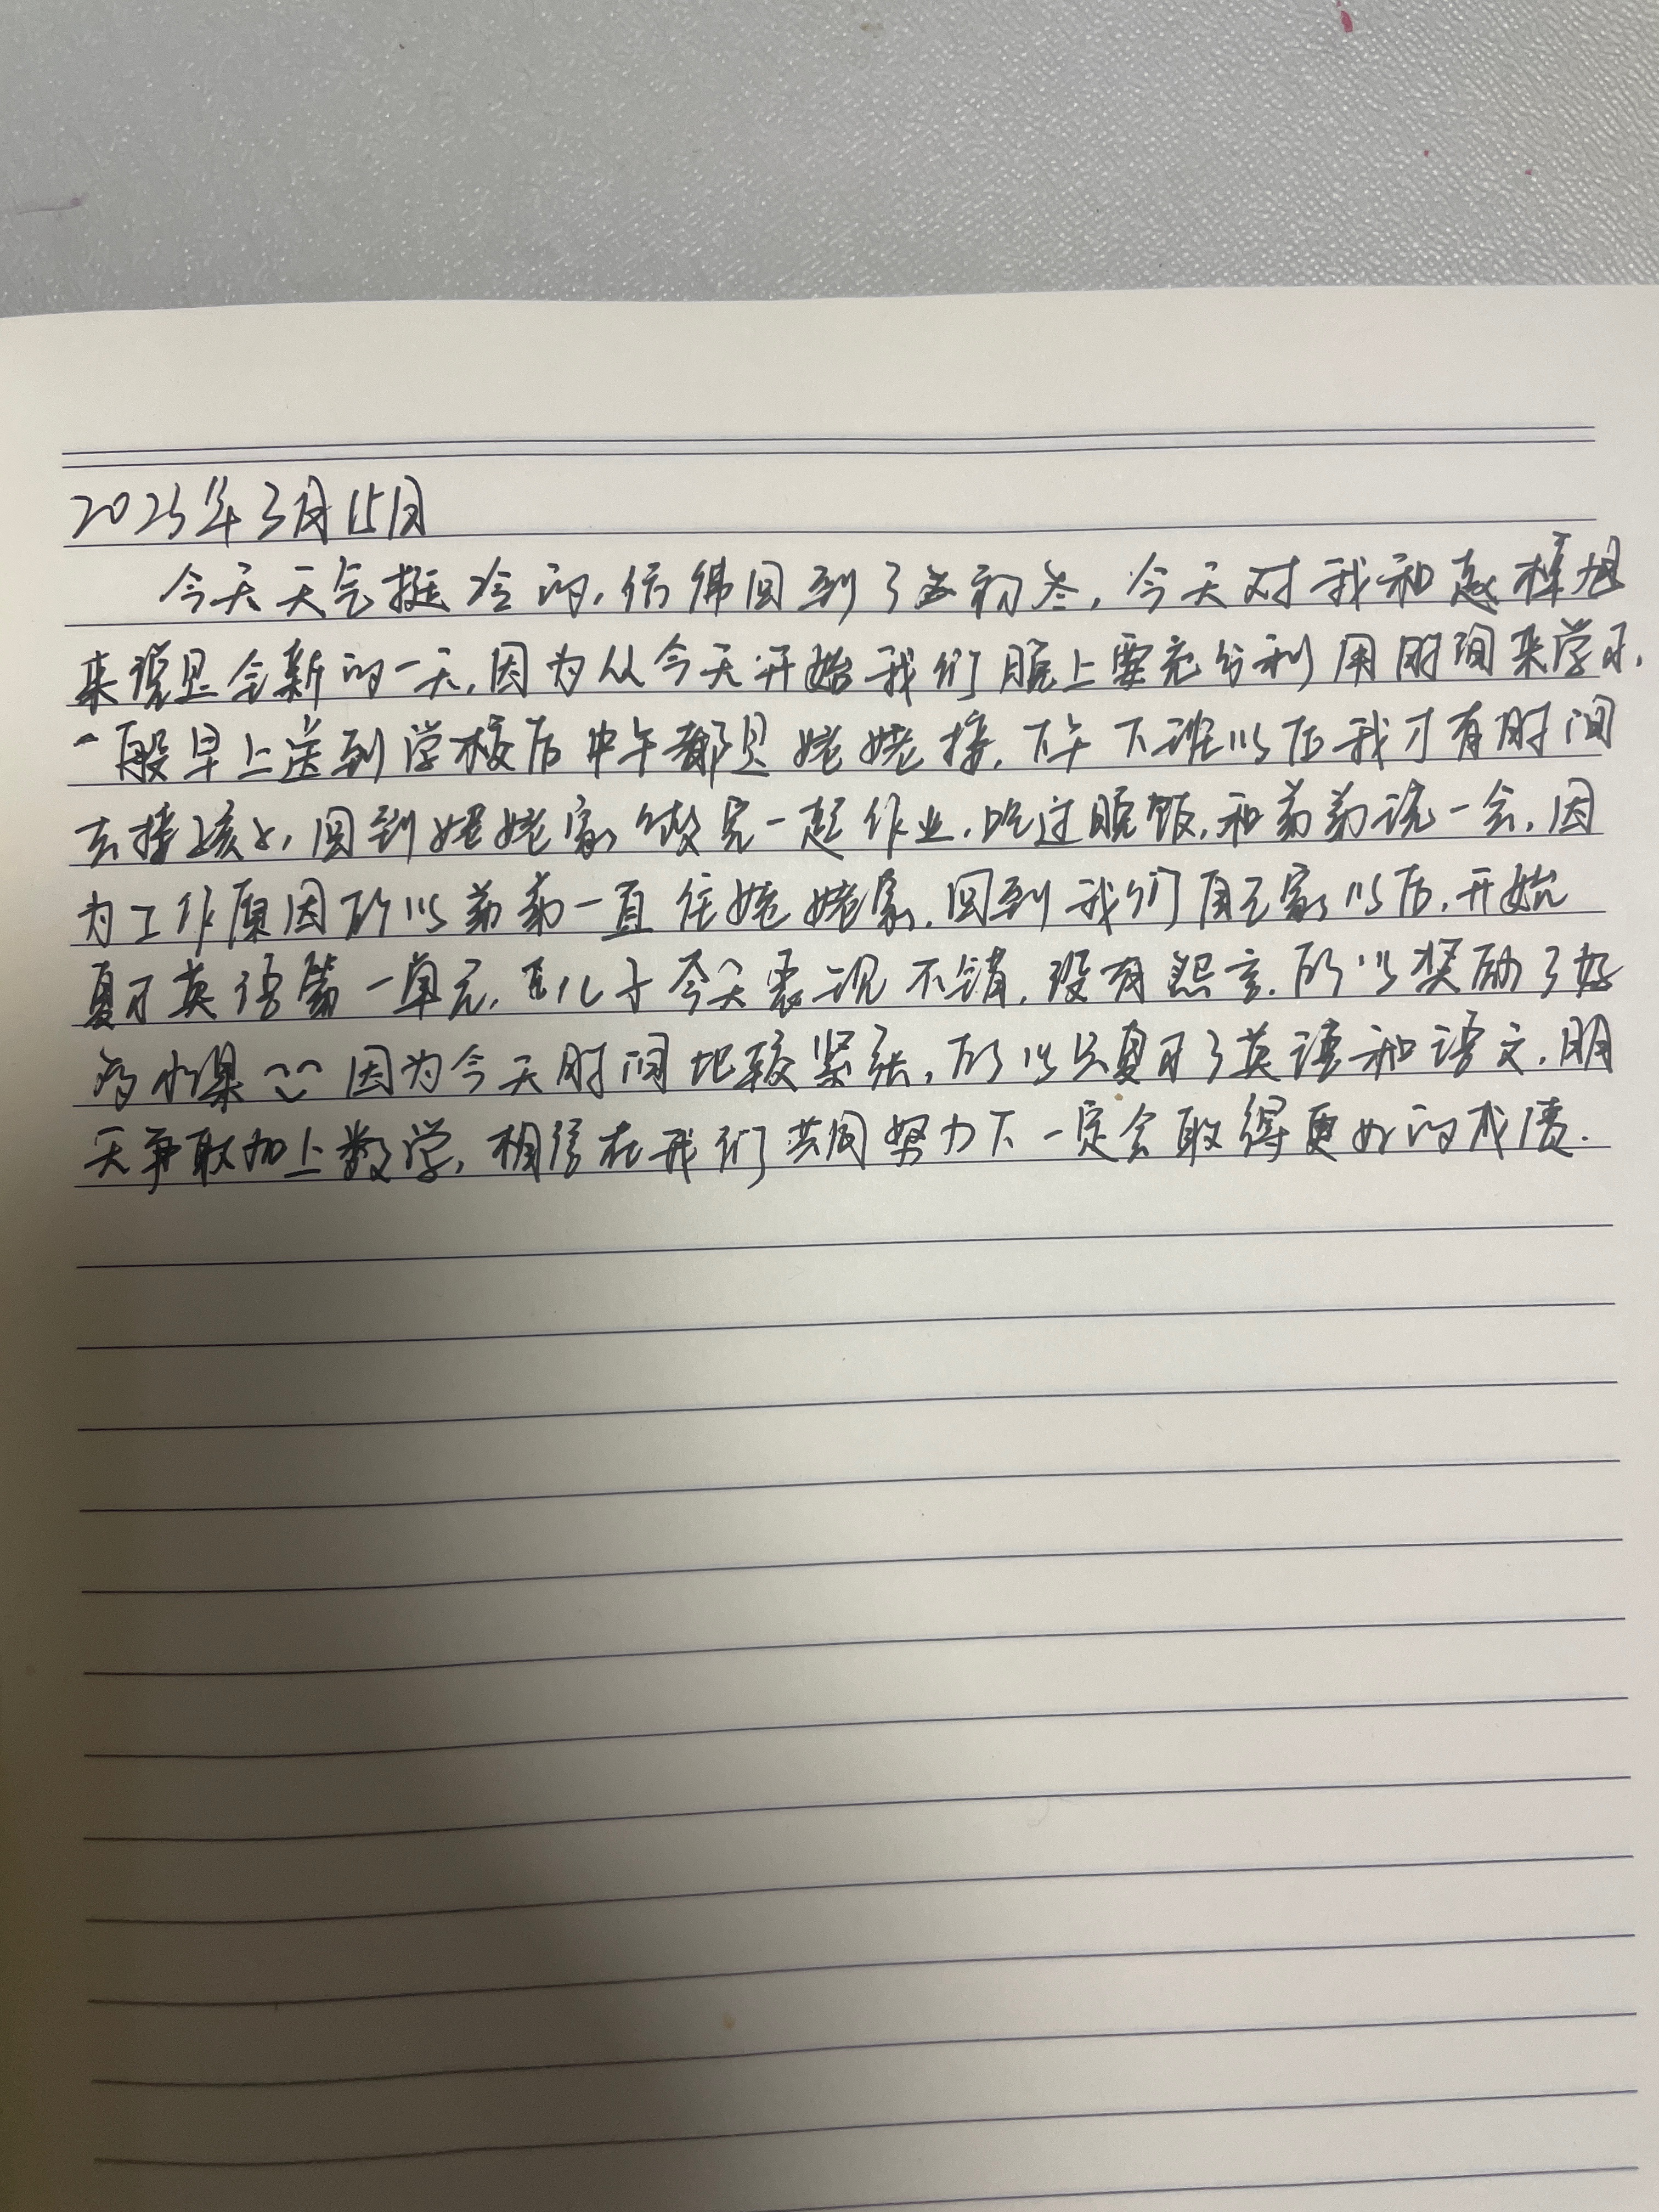 2023年3月15日
今天天气挺冷的,仿佛回到了初冬,今天对我和赵梓旭
来说是全新的一天,因为从今天开始我们晚上要充分利用时间来学习,
一般早上送到学校后中午都是姥姥接,下午下班以后我才有时间
去接孩子,回到姥姥家做完一起作业,吃过晚饭,和弟弟玩一会,因
为工作原因所以弟弟一直住姥姥家,回到我们自己家以后,开始
复习英语第一单元,儿子今天表现不错,没有怨言,所以奖励了好
的水果 因为今天时间比较紧张,所以只复习了英语和语文,明
天争取加上数学,相信在我们共同努力下一定会取得更好的成绩.